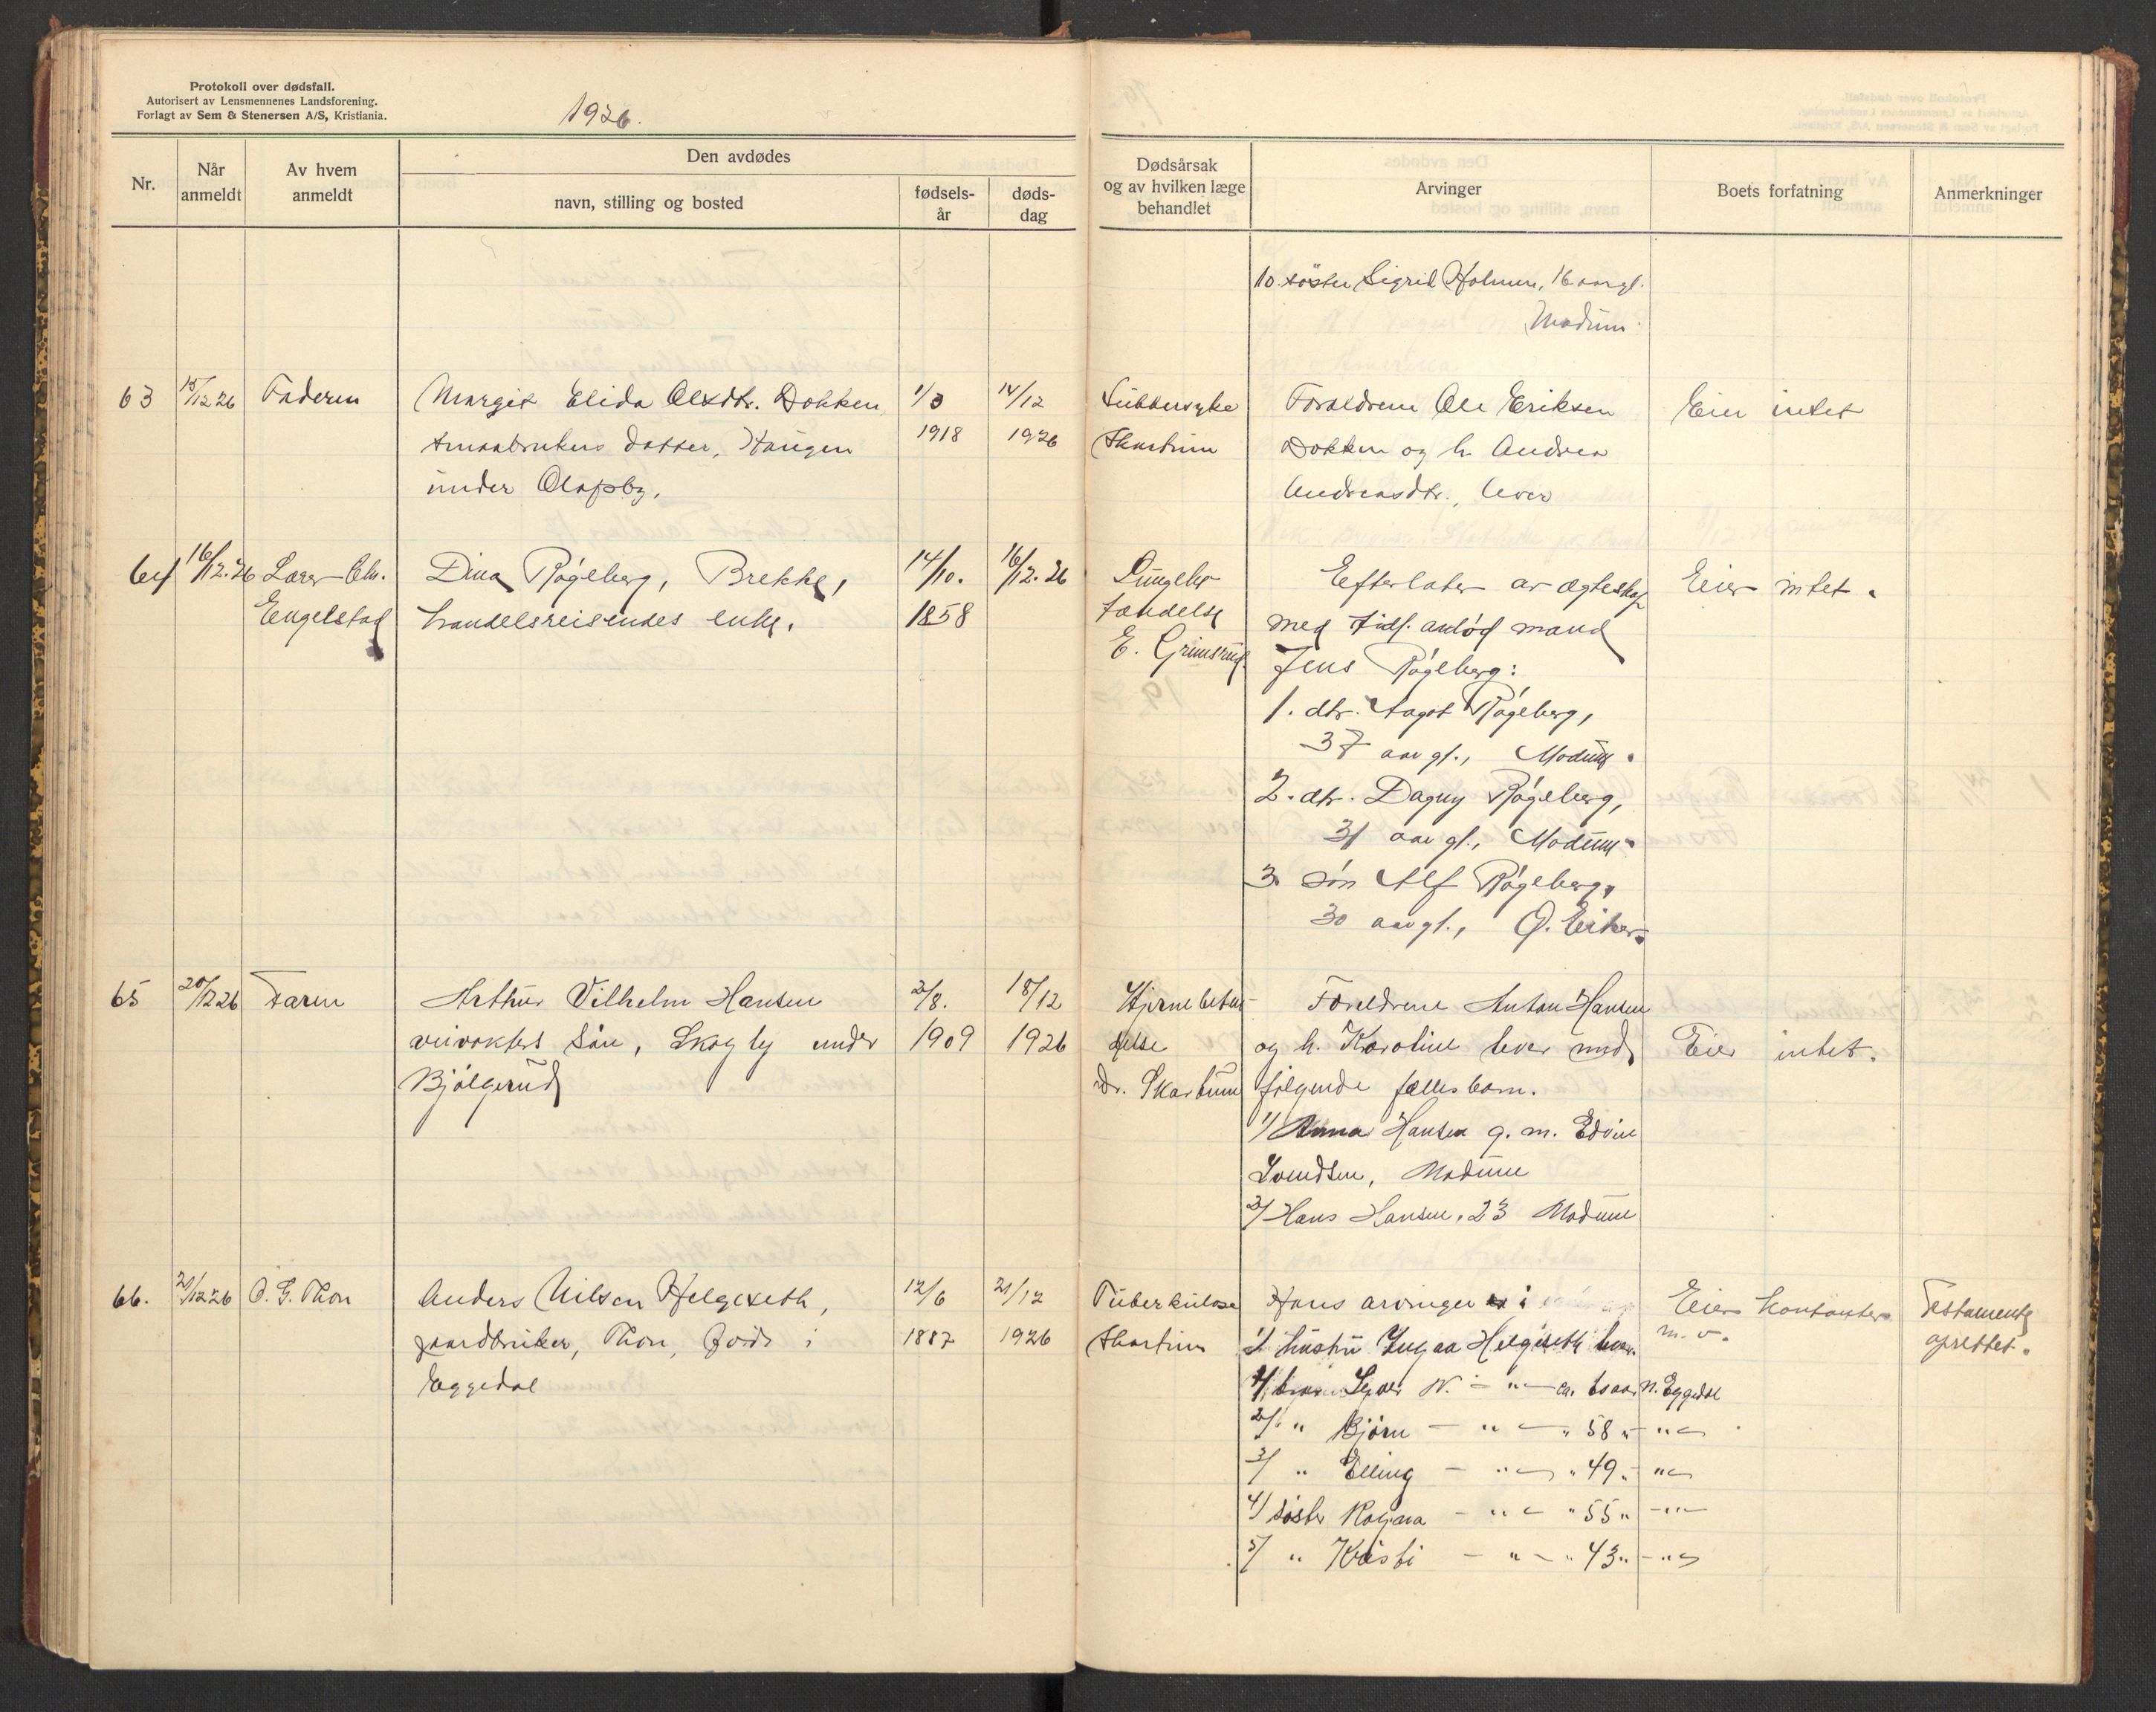 Protokoll over dødsfall.
Autorisert av Lensmennenes Landsforening.
Forlagt av Sem & Stenersen A/S, Kristiania.
1926.
Nr.
Når anmeldt
Av hvem anmeldt
Den avdødes
navn, stilling og bosted
fødsels-
år
døds-
dag
Dødsårsak
og av hvilken læge
behandlet
Arvinger
Boets forfatning
Anmerkninger
10. søster Sigrid Holmen, 16 aar gl.
Modum.
63 15/12 26 Faderen Margit Elida Olsdtr. Dokken 1/3 14/12 Forældrene Ole Eriksen Eier intet
smaabrukers datter, Haugen 1918 1926 Skartum Dokken og h. Andrea
under Olafsby. Andreasdtr., lever
64 16/12. 26 Lærer Chr. Dina Røgeberg, Brekke, 14/10. 16/12. 26 Lungebe- Efterlater av ægteskap Eier intet.
Engelstad handelsreisendes enke. 1858 tændelse med tidl. avdød mand
E. Grimsrud. Jens Røgeberg:
1. dtr. Aagot Røgeberg,
37 aar gl., Modum.
2. dtr. Dagny Røgeberg,
31 aar gl., Modum.
3. søn Alf Røgeberg,
30 aar gl., Ø. Eiker.
65 20/12 26 Faren Arthur Vilhelm Hansen 2/8. 18/12 Hjernebetæn- Forældrene Anton Hansen
veivokters søn, Skogly under 1909 1926 delse og h. Karoline lever med Eier intet.
Bjølgerud dr. Skartum følgende fællesbarn.
1/ Anna Hansen g. m. Edvin
Svendsen, Modum
2/ Hans Hansen, 23 Modum
66. 21/12 26 O. G. Thon Anders Nilsen Helgeseth, 12/6 21/12 Tuberkulose Hans arvinger er: Eier kontanter Testamente
gaardbruker, Thon, født i 1887 1926 Skartum 1/ hustru Ingaa Helgeseth lever. m. v. oprettet.
Eggedal 1/ bror N. - " - ca. aar N. Eggedal
2/ " Bjørn - " - " 58 " - " -
3/ " Elling - " - " 49 " - " -
4/ søster Ragna - " - " 55 " - " -
5/ " Kristi - " - " 43 " - " -